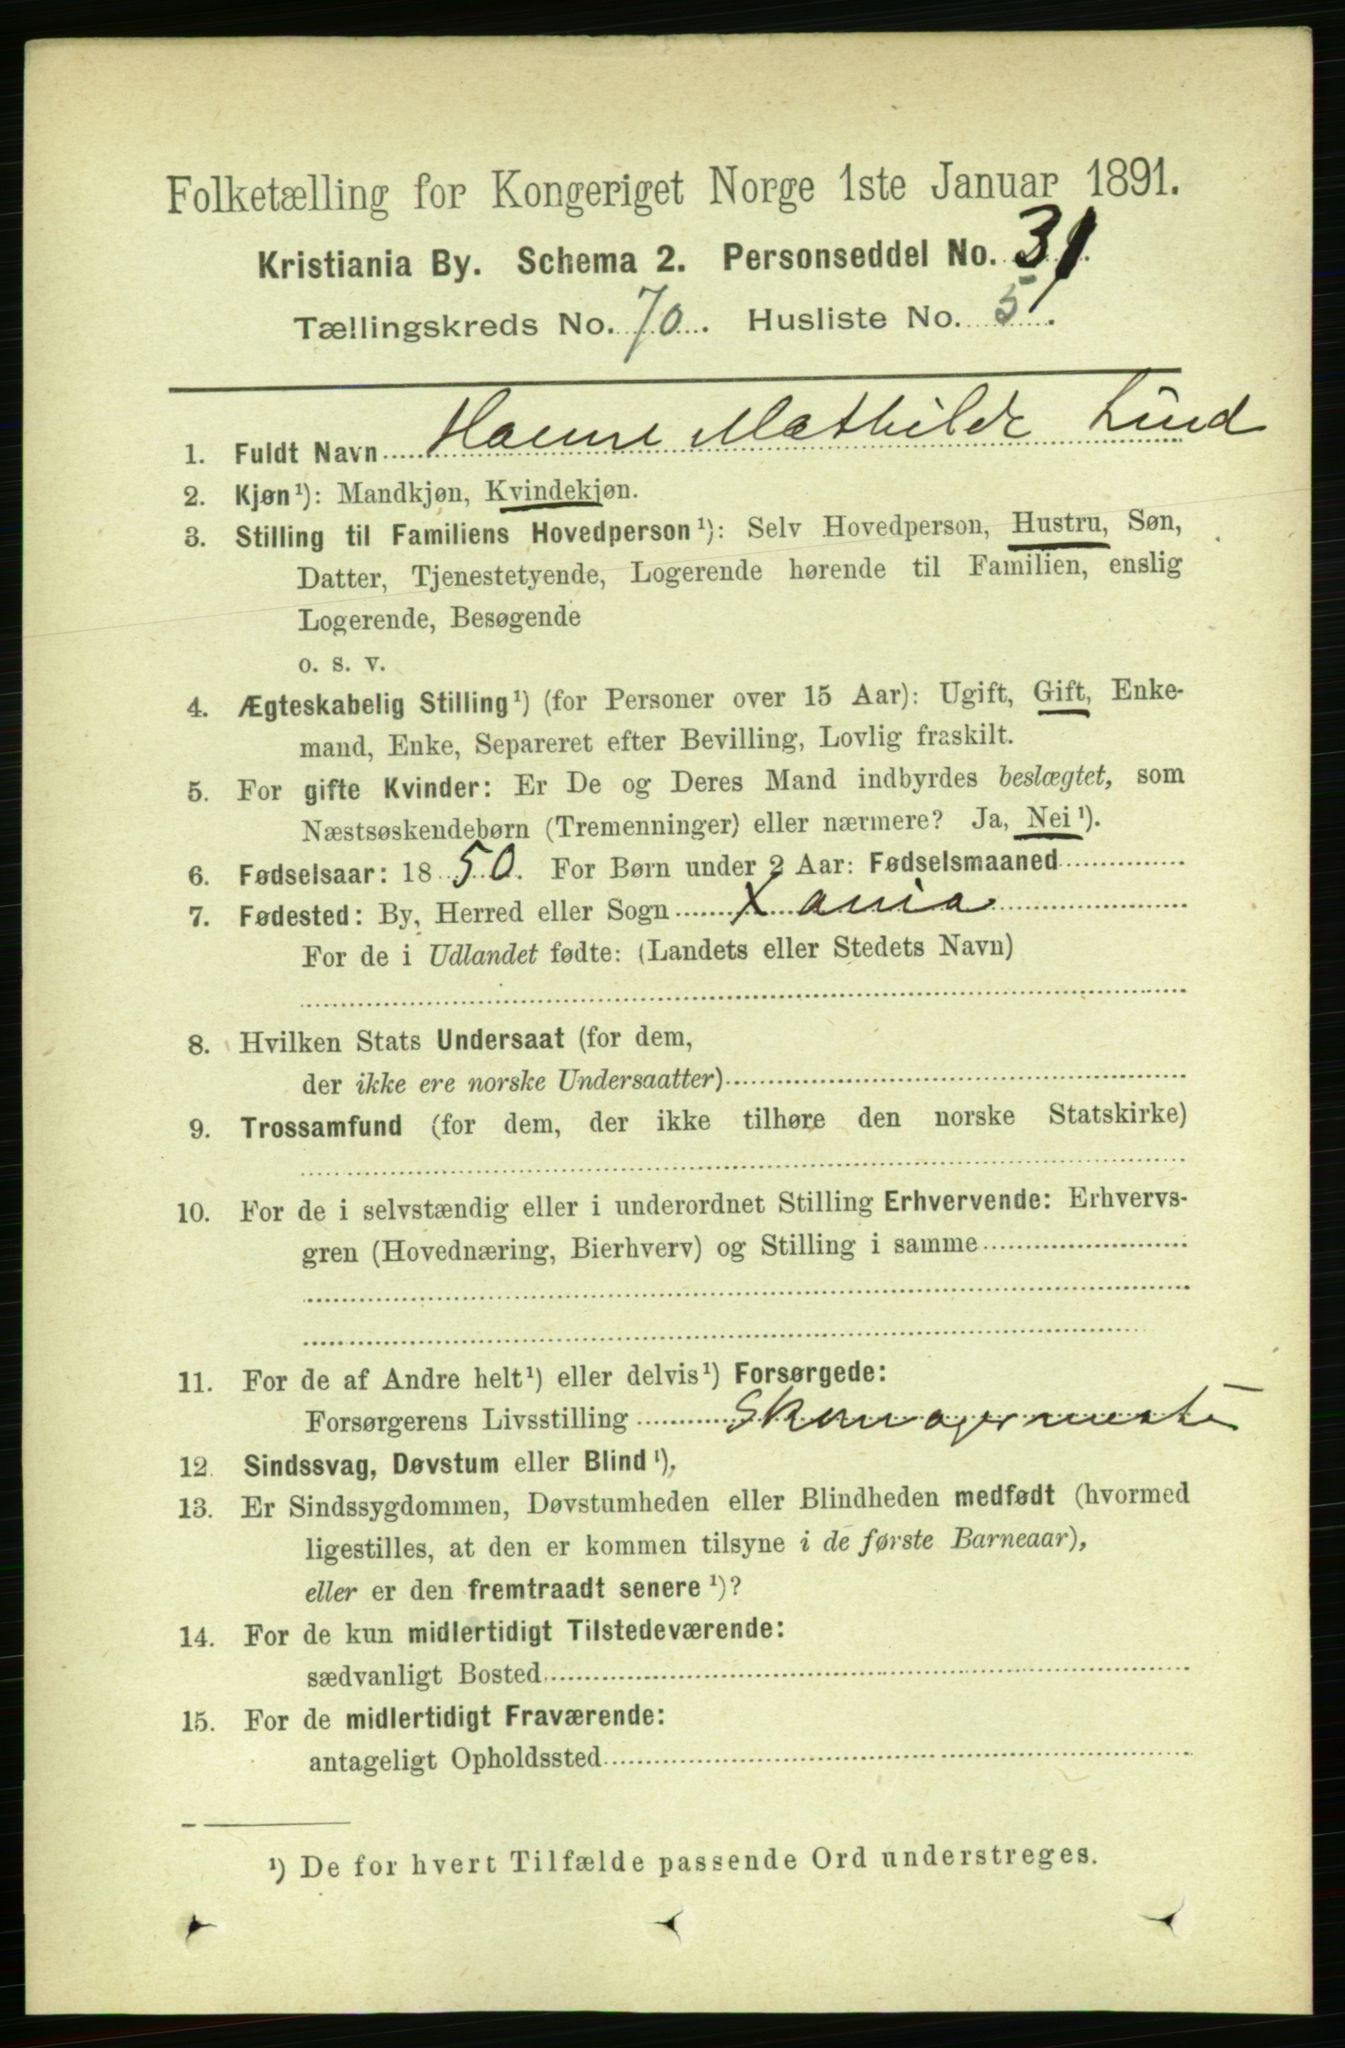 Folketælling for Kongeriget Norge 1ste Januar 1891.
Kristiania By. Schema 2. Personseddel No. 31.
Tællingskreds No. 70. Husliste No. 5.
1. Fuldt Navn Hanne Mathilde Lind
2. Kjøn¹): Mandkjøn, Kvindekjøn.
3. Stilling til Familiens Hovedperson¹): Selv Hovedperson, Hustru, Søn,
Datter, Tjenestetyende, Logerende hørende til Familien, enslig
Logerende, Besøgende
o. s. v.
4. Ægteskabelig Stilling¹) (for Personer over 15 Aar): Ugift, Gift, Enke-
mand, Enke, Separeret efter Bevilling, Lovlig fraskilt.
5. For gifte Kvinder: Er De og Deres Mand indbyrdes beslægtet, som
Næstsøskendebørn (Tremenninger) eller nærmere? Ja, Nei¹).
6. Fødselsaar: 1850. For Børn under 2 Aar: Fødselsmaaned
7. Fødested: By, Herred eller Sogn Xania
For de i Udlandet fødte: (Landets eller Stedets Navn)
8. Hvilken Stats Undersaat (for dem,
der ikke ere norske Undersaatter)
9. Trossamfund (for dem, der ikke tilhøre den norske Statskirke)
10. For de i selvstændig eller i underordnet Stilling Erhvervende: Erhvervs-
gren (Hovednæring, Bierhverv) og Stilling i samme
11. For de af Andre helt¹) eller delvis¹) Forsørgede:
Forsørgerens Livsstilling
12. Sindssvag, Døvstum eller Blind¹).
13. Er Sindssygdommen, Døvstumheden eller Blindheden medfødt (hvormed
ligestilles, at den er kommen tilsyne i de første Barneaar),
eller er den fremtraadt senere¹)?
14. For de kun midlertidigt Tilstedeværende:
sædvanligt Bosted
15. For de midlertidigt Fraværende:
antageligt Opholdssted
¹) De for hvert Tilfælde passende Ord understreges.